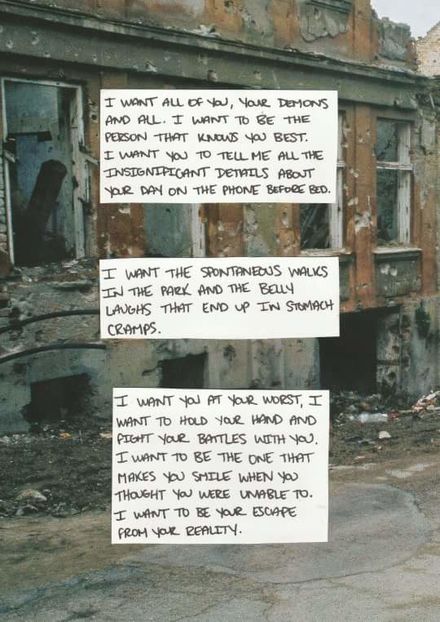 I WANT ALL OF YOU, YOUR DEMONS
AND ALL. I WANT TO BE THE
PERSON THAT KNOWS YOU BEST.
I WANT YOU TO TELL ME ALL THE
INSIGNIFICANT DETAILS ABOUT
YOUR DAY ON THE PHONE BEFORE BED.
I WANT THE SPONTANEOUS WALKS
IN THE PARK AND THE BELLY
LAUGHS THAT END UP IN STOMACH
CRAMPS.
I WANT YOU AT YOUR WORST, I
WANT TO HOLD YOUR HAND AND
FIGHT YOUR BATTLES WITH YOU.
I WANT TO BE THE ONE THAT
MAKES YOU SMILE WHEN YOU
THOUGHT YOU WERE UNABLE TO.
I WANT TO BE YOUR ESCAPE
FROM YOUR REALITY.